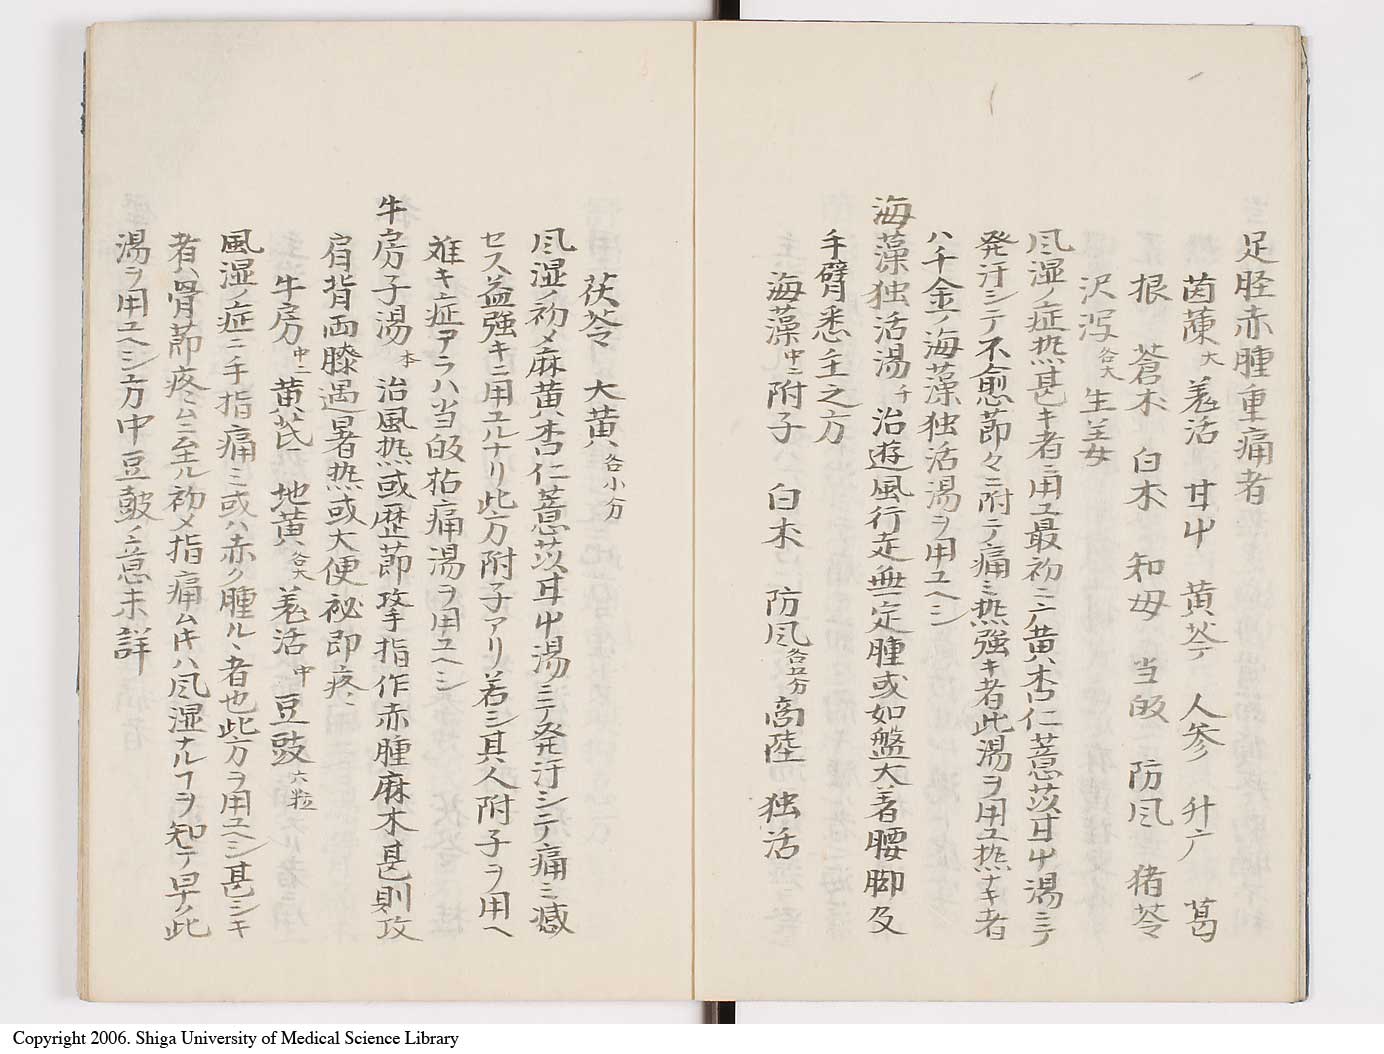 足脛赤腫重痛者
茵蔯大 羌活 甘中 黄芩 人参 升广 葛
根 蒼朮 白朮 知母 当皈 防风 猪苓
沢泻各大 生姜
风湿ノ症热甚キ者ニ用ユ最初ニ广黄杏仁薏苡甘中湯ニテ
発汗シテ不愈節々ニ附テ痛ミ热強キ者此湯ヲ用ユ热ナキ者
ハ千金ノ海藻独活湯ヲ用ユヘシ
海藻独活湯千 治遊風行走無定腫或如盤大著腰脚及
手臂悉主之方
海藻中ニ 附子 白朮 防风各五分 商陸 独活
茯苓 大黄各小分
风湿ノ初メ麻黄杏仁薏苡甘中湯ニテ発汗シテ痛ミ減
セス益強キニ用ユルナリ此方附子アリ若シ其人附子ヲ用ヘ
难キ症アラハ当皈拈痛湯ヲ用ユヘシ
牛房子湯本 治風热或歴節攣指作赤腫麻木甚則攻
肩背両膝遇暑热或大便秘即疼
牛房中ニ 黄芪 地黄各大 羌活中 豆豉六粒
風湿ノ症ニ手指痛ミ或ハ赤ク腫ルヽ者也此方ヲ用ユヘシ甚シキ
者ハ骨節疼ムニ至ル初メ指痛ム时ハ风湿ナルヿヲ知テ早ク此
湯ヲ用ユヘシ方中豆豉ノ意未詳
Copyright 2006. Shiga University of Medical Science Library